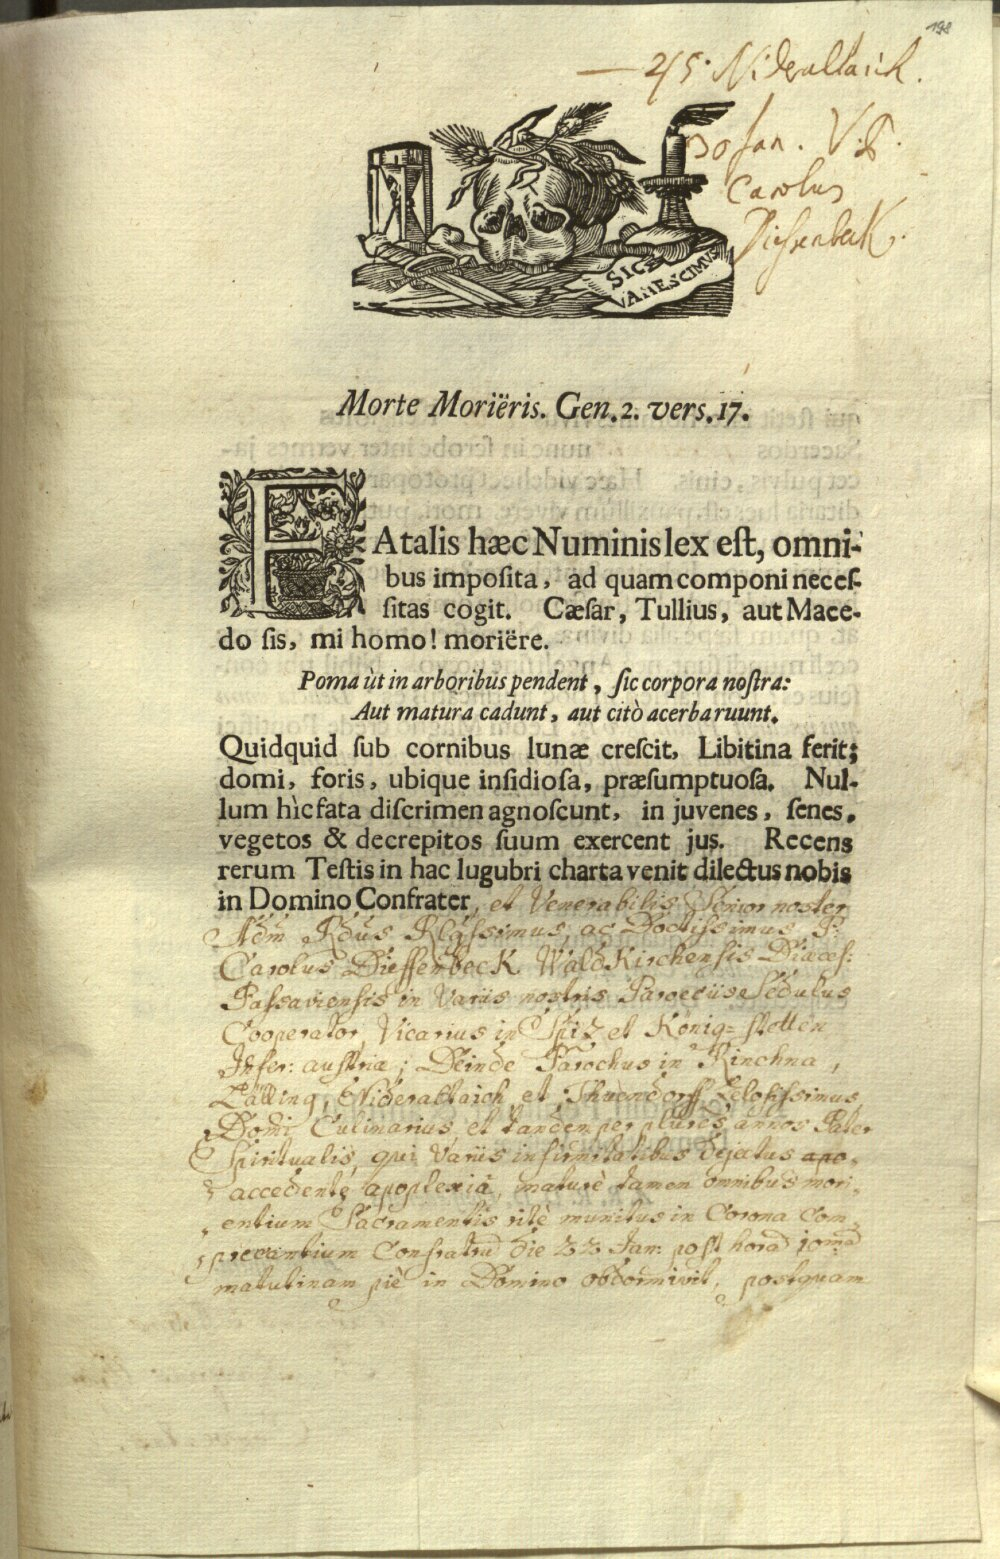 198
— 215. Nideraltaich.
Carolus
SIC E
VANESCIMUS
Morte Moriëris. Gen. 2. vers. 17.
FAtalis hæc Numinis lex eſt, omni-
bus impoſita, ad quam componi neceſ-
ſitas cogit. Cæſar, Tullius, aut Mace-
do ſis, mi homo! moriëre.
Poma ùt in arboribus pendent, ſic corpora noſtra:
Aut matura cadunt, aut citò acerba ruunt.
Quidquid ſub cornibus lunæ creſcit, Libitina ferit;
domi, foris, ubique inſidioſa, præſumptuoſa. Nul-
lum hìc fata diſcrimen agnoſcunt, in juvenes, ſenes,
vegetos & decrepitos ſuum exercent jus. Recens
rerum Teſtis in hac lugubri charta venit dilectus nobis
in Domino Confrater, et Venerabilis Senior noster
Adm Rdus Rlgssimus, ac Doctissimus P:
Carolus Dieffenbeck WaldKirchensis Diæces:
Passaviensis in Variis nostris Paroeciis Sedulus
Cooperator, Vicarius in Spiz et König=stetten
Infer: austriæ; Deinde Parochus in Rinchna,
Lalling, Nideraltaich et Thuendorff Zelosissimus,
Domi Culinarius, et tandem per plures annos Pater
Spiritualis, qui Variis infirmitatibus vejatus
accedente apoplexiâ, maturè tamen omnibus mori-
entium Sacramentis ritè munitus in Corona Com-
precantium Confratrũ die 22 Jan: post horã 10mã
matutinam piè in Domino obdormivit, postquam